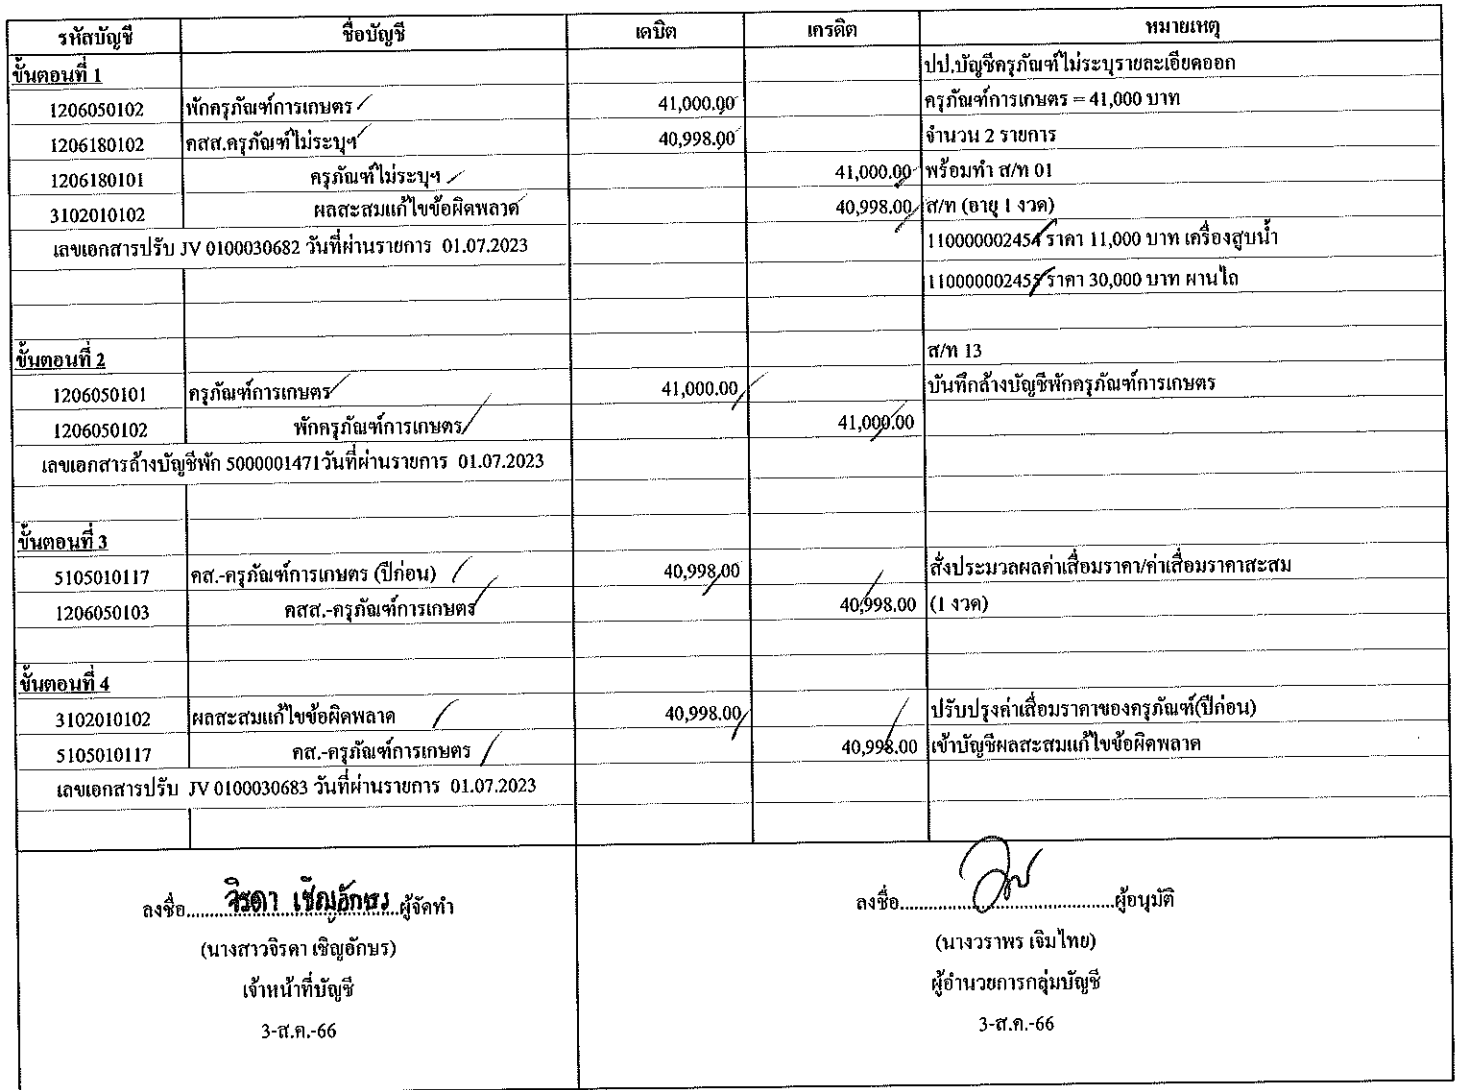 รหัสบัญชี ชื่อบัญชี เดบิต เครดิต หมายเหตุ
ขั้นตอนที่ 1 ปป.บัญชีครุภัณฑ์ไม่ระบุรายละเอียดออก
1206050102 พักครุภัณฑ์การเกษตร 41,000.00 ครุภัณฑ์การเกษตร = 41,000 บาท
1206180102 คสส.ครุภัณฑ์ไม่ระบุฯ 40,998.00 จำนวน 2 รายการ
1206180101 ครุภัณฑ์ไม่ระบุฯ 41,000.00 พร้อมทำ ส/ท 01
3102010102 ผลสะสมแก้ไขข้อผิดพลาด 40,998.00 ส/ท (อายุ 1 งวด)
เลขเอกสารปรับ JV 0100030682 วันที่ผ่านรายการ 01.07.2023 110000002454 ราคา 11,000 บาท เครื่องสูบน้ำ
110000002455 ราคา 30,000 บาท ผานไถ
ขั้นตอนที่ 2 ส/ท 13
1206050101 ครุภัณฑ์การเกษตร 41,000.00 บันทึกล้างบัญชีพักครุภัณฑ์การเกษตร
1206050102 พักครุภัณฑ์การเกษตร 41,000.00
เลขเอกสารล้างบัญชีพัก 5000001471วันที่ผ่านรายการ 01.07.2023
ขั้นตอนที่ 3
5105010117 คส.-ครุภัณฑ์การเกษตร (ปีก่อน) 40,998.00 สั่งประมวลผลค่าเสื่อมราคา/ค่าเสื่อมราคาสะสม
1206050103 คสส.-ครุภัณฑ์การเกษตร 40,998.00 (1 งวด)
ขั้นตอนที่ 4
3102010102 ผลสะสมแก้ไขข้อผิดพลาด 40,998.00 ปรับปรุงค่าเสื่อมราคาของครุภัณฑ์(ปีก่อน)
5105010117 คส.-ครุภัณฑ์การเกษตร 40,998.00 เข้าบัญชีผลสะสมแก้ไขข้อผิดพลาด
เลขเอกสารปรับ JV 0100030683 วันที่ผ่านรายการ 01.07.2023
ลงชื่อ....จิรดา เชิญอักษร....ผู้จัดทำ ลงชื่อ........ผู้อนุมัติ
(นางสาวจิรดา เชิญอักษร) (นางวราพร เจิมไทย)
เจ้าหน้าที่บัญชี ผู้อำนวยการกลุ่มบัญชี
3-ส.ค.-66 3-ส.ค.-66